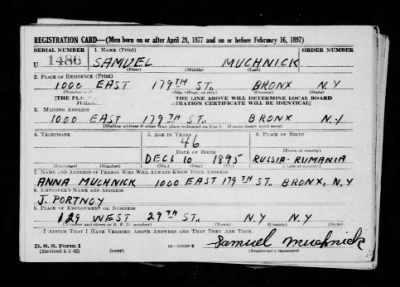 REGISTRATION CARD—(Men born on or after April 28, 1877 and on or before February 16, 1897)
SERIAL NUMBER 1. NAME (Print) ORDER NUMBER
U 1486 SAMUEL MUCHNICK
(First) (Middle) (Last)
2. PLACE OF RESIDENCE (Print)
1000 EAST 179TH ST. BRONX N.Y
[THE PLACE THE LINE ABOVE WILL DETERMINE LOCAL BOARD
TRATION CERTIFICATE WILL BE IDENTICAL]
3. MAILING ADDRESS
1000 EAST 179TH ST. BRONX N.Y.
[Mailing address if other than place indicated on line 2. If same insert word same]
4. TELEPHONE 5. AGE IN YEARS 6. PLACE OF BIRTH
46
DATE OF BIRTH
DEC 10 1895 RUSSIA-RUMANIA
7. NAME AND ADDRESS OF PERSON WHO WILL ALWAYS KNOW YOUR ADDRESS
ANNA MUCHNICK 1000 EAST 179TH ST. BRONX, N.Y
8. EMPLOYER'S NAME AND ADDRESS
J. PORTNOY
9. PLACE OF EMPLOYMENT OR BUSINESS
129 WEST 29TH ST. N.Y N.Y
I AFFIRM THAT I HAVE VERIFIED ABOVE ANSWERS AND THAT THEY ARE TRUE.
D. S. S. Form 1 Samuel Muchnick
(Revised 4-1-42) (Registrant's signature)